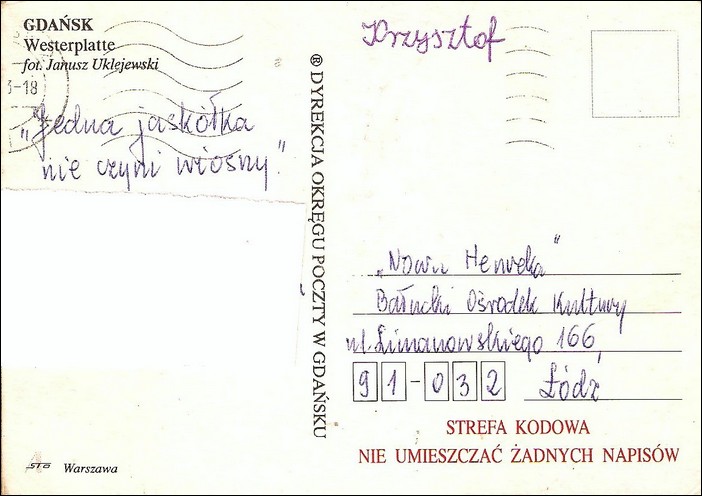 GDAŃSK
Westerplatte
fot. Janusz Uklejewski
3-18
"Jedna jaskółka
nie czyni wiosny."
® DYREKCJA OKRĘGU POCZTY W GDAŃSKU
Krzysztof
"Nowa
Bałucki Ośrodek Kultury
ul. Limanowskiego 166,
91-032 Łódź
STREFA KODOWA
NIE UMIESZCZAĆ ŻADNYCH NAPISÓW
Warszawa